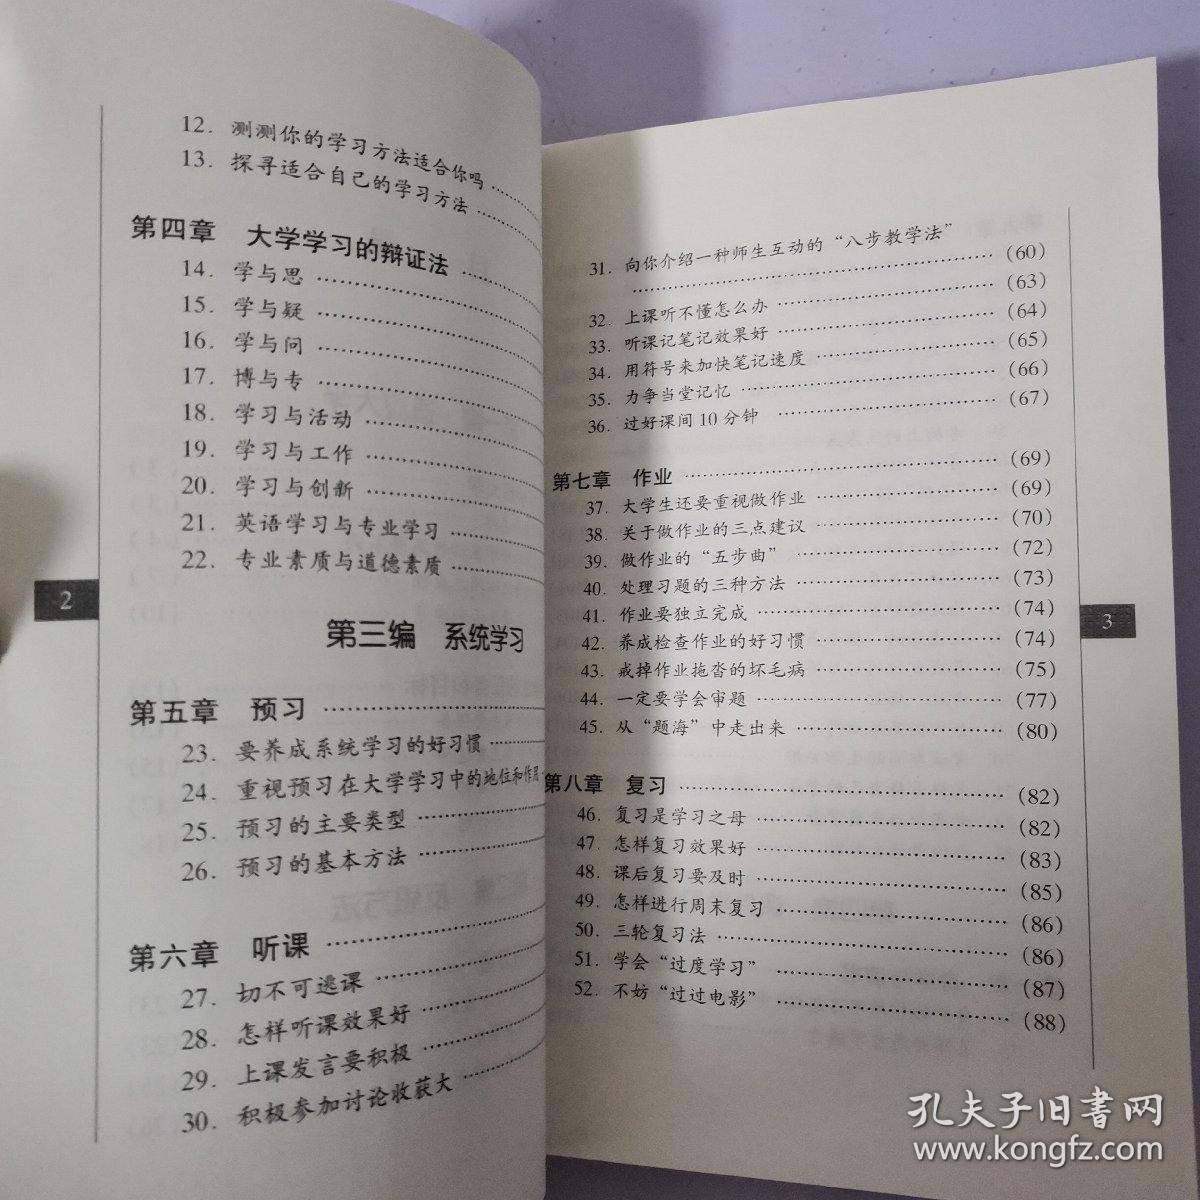 12. 测测你的学习方法适合你吗
13. 探寻适合自己的学习方法
第四章 大学学习的辩证法
14. 学与思
15. 学与疑
16. 学与问
17. 博与专
18. 学习与活动
19. 学习与工作
20. 学习与创新
21. 英语学习与专业学习
22. 专业素质与道德素质
2
第三编 系统学习
第五章 预习
23. 要养成系统学习的好习惯
24. 重视预习在大学学习中的地位和作
25. 预习的主要类型
26. 预习的基本方法
第六章 听课
27. 切不可逃课
28. 怎样听课效果好
29. 上课发言要积极
30. 积极参加讨论收获大
31. 向你介绍一种师生互动的“八步教学法”
(60)
32. 上课听不懂怎么办 (63)
33. 听课记笔记效果好 (64)
34. 用符号来加快笔记速度 (65)
35. 力争当堂记忆 (66)
36. 过好课间10分钟 (67)
第七章 作业 (69)
37. 大学生还要重视做作业 (69)
38. 关于做作业的三点建议 (70)
39. 做作业的“五步曲” (72)
40. 处理习题的三种方法 (73)
41. 作业要独立完成 (74)
42. 养成检查作业的好习惯 (74)
43. 戒掉作业拖沓的坏毛病 (75)
44. 一定要学会审题 (77)
45. 从“题海”中走出来 (80)
3
第八章 复习 (82)
46. 复习是学习之母 (82)
47. 怎样复习效果好 (83)
48. 课后复习要及时 (85)
49. 怎样进行周末复习 (86)
50. 三轮复习法 (86)
51. 学会“过度学习” (87)
52. 不妨“过过电影” (88)
孔夫子旧书网
www.kongfz.com